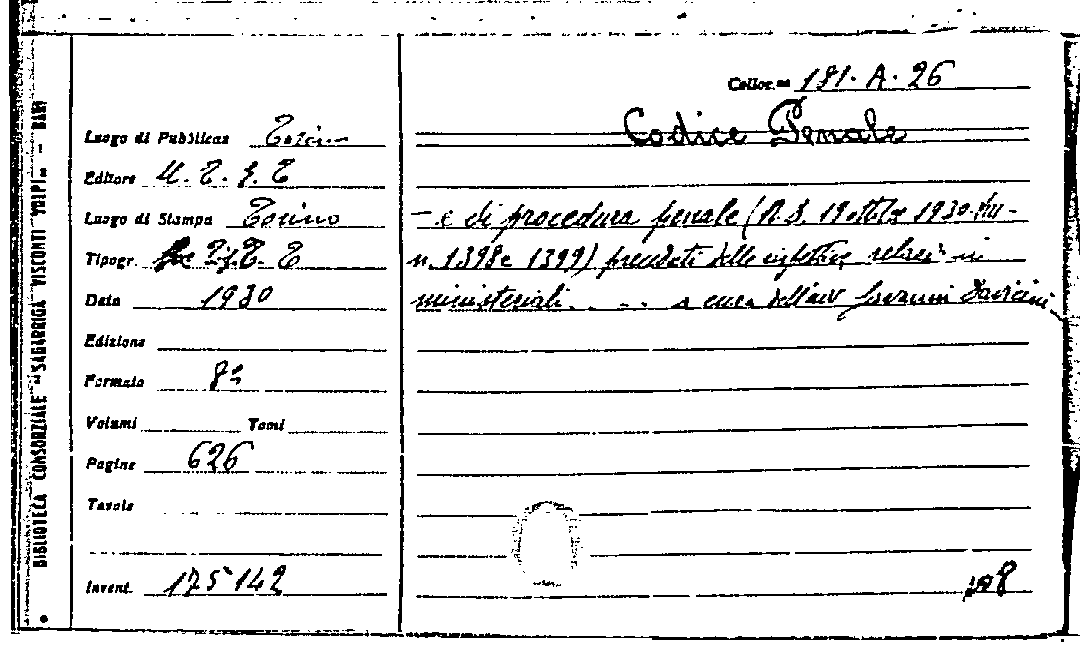 BIBLIOTECA CONSORZIALE "SAGARRIGA VISCONTI VOLPI" - BARI
Colloc.ne 181. A. 26
Codice Penale
Luogo di Pubblicaz Torino
Editore U. T. E. T
Luogo di Stampa Torino
Tipogr. T. E. T
Data 1930
Edizione
Formato 8º
Volumi Tomi
Pagine 626
Tavole
Invent. 175142
- e di procedura penale (R. D. 19 ottobre 1930-VIII-
n. 1398 e 1399) preceduti dalle rispettive relazioni
ministeriali. ... a cura dell'avv Giovanni